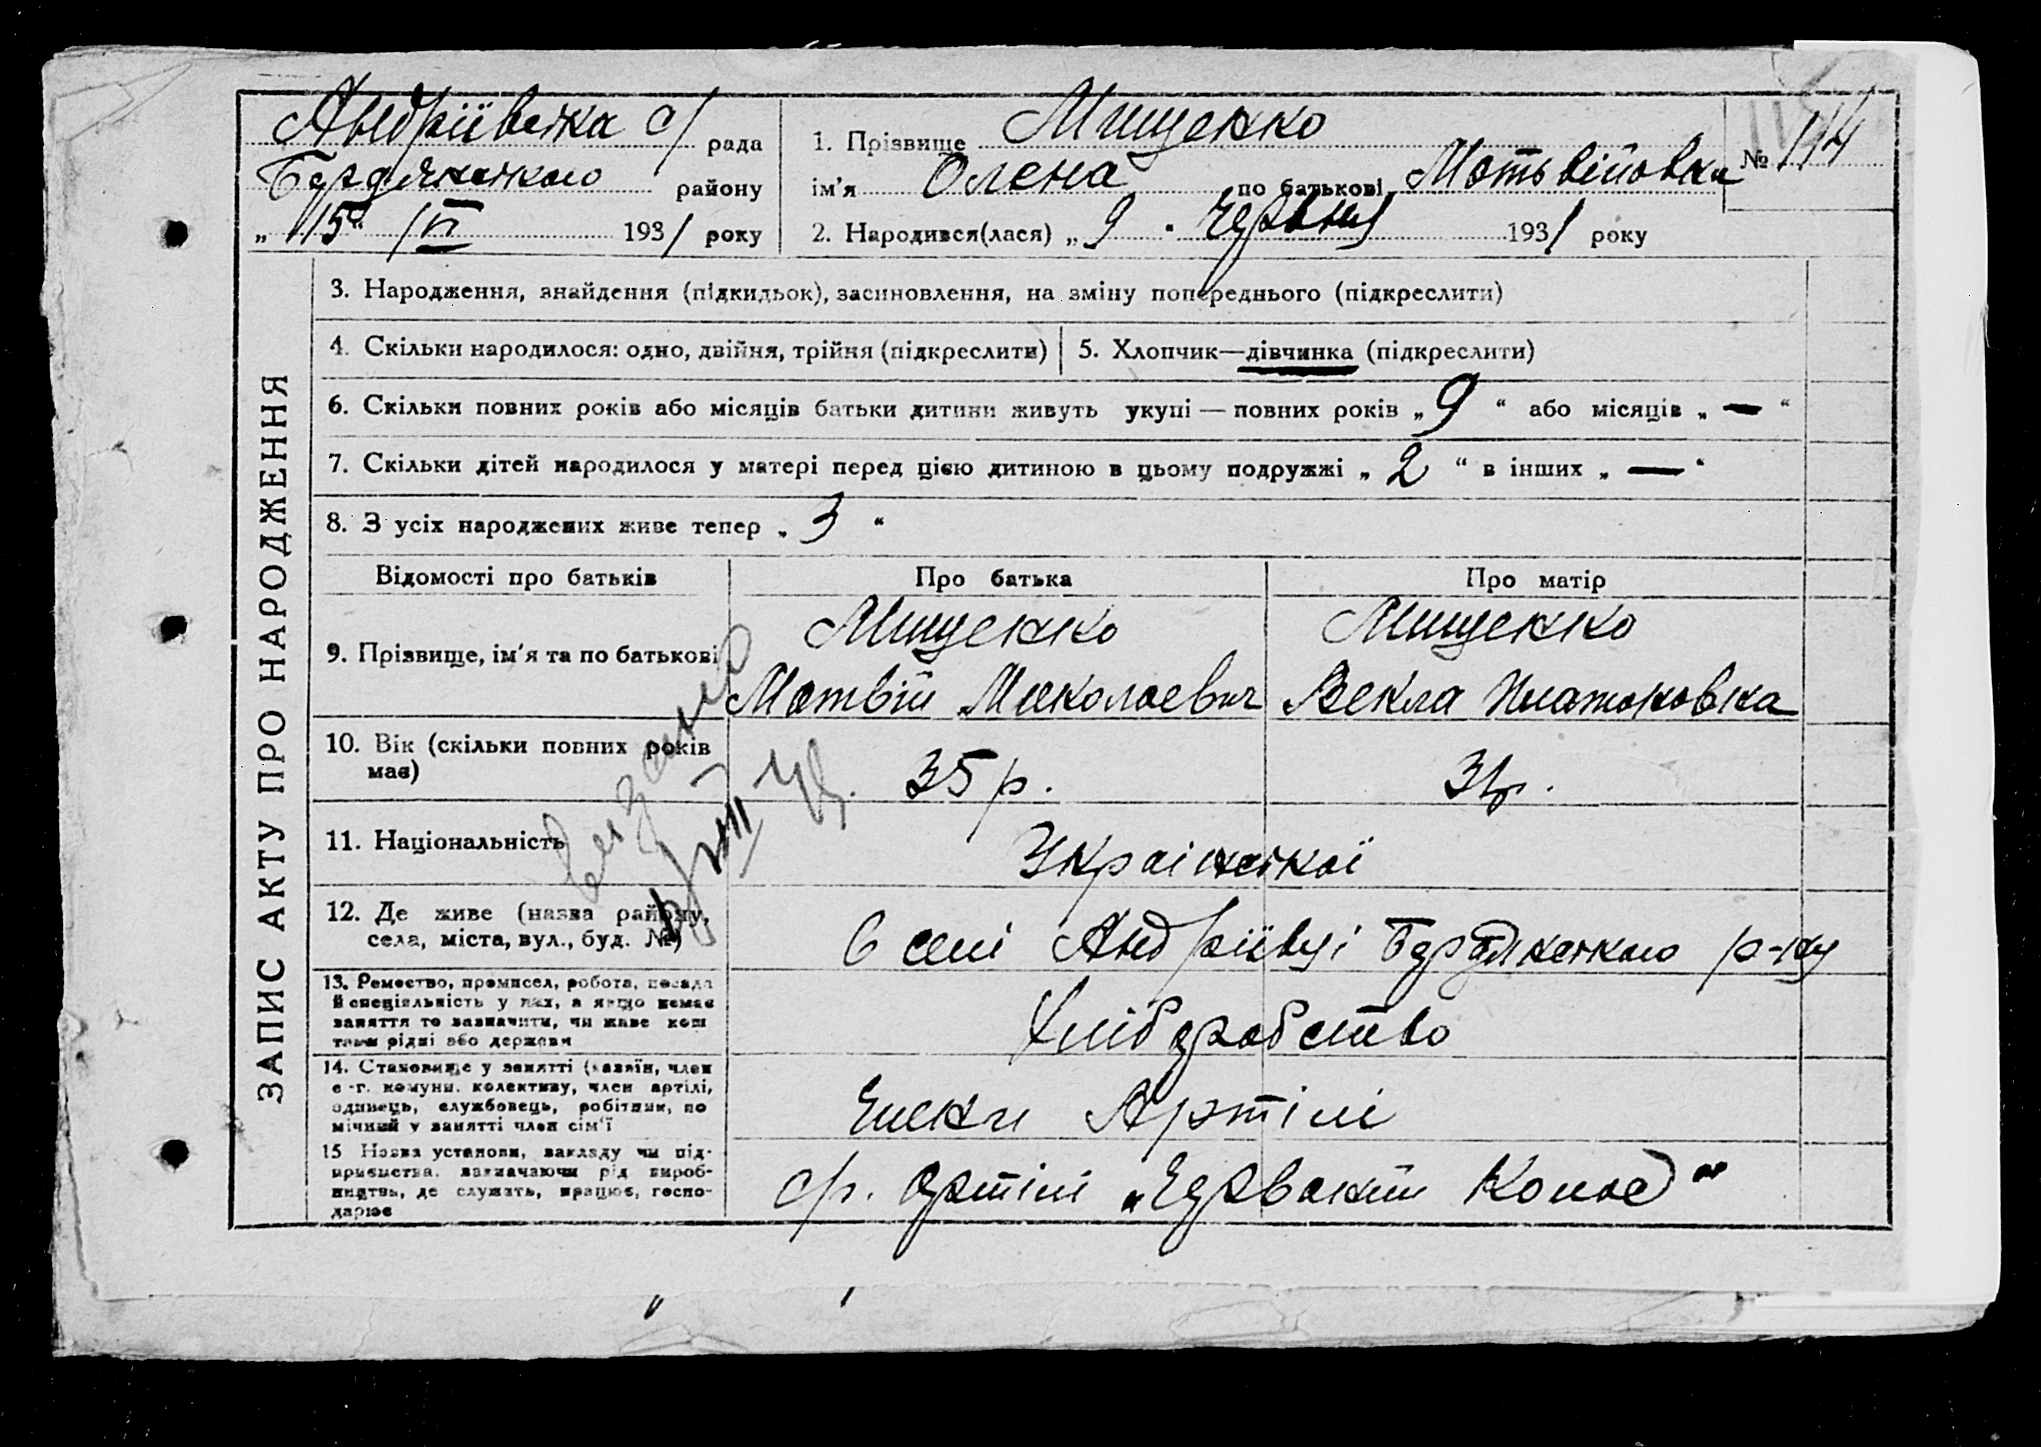 Андріївська с/рада
Бердянського району
„15“ VI 1931 року
1. Прізвище Мищенко
ім'я Олена по батькові Мотьвійовна
№ 114
2. Народився(лася) „9“ Червня 1931 року
ЗАПИС АКТУ ПРО НАРОДЖЕННЯ
3. Народження, знайдення (підкидьок), засиновлення, на зміну попереднього (підкреслити)
4. Скільки народилося: одно, двійня, трійня (підкреслити)
5. Хлопчик—дівчинка (підкреслити)
6. Скільки повних років або місяців батьки дитини живуть укупі — повних років „9“ або місяців „—“
7. Скільки дітей народилося у матері перед цією дитиною в цьому подружжі „2“ в інших „—“
8. З усіх народжених живе тепер „3“
Відомості про батьків Про батька Про матір
9. Прізвище, ім'я та по батькові
Мищенко
Мотвій Миколаевич
Мищенко
Векла Платоновна
10. Вік (скільки повних років
має)
35 р.
31 р.
11. Національність
Української
12. Де живе (назва району,
села, міста, вул., буд. №)
в селі Андріївці Бердянського р-ну
13. Ремество, промисел, робота, посада
й спеціяльність у них, а якщо немає
заняття то зазначити, чи живе кош
тами рідні або держави
Хліборобство
14. Становище у занятті (хазяїн, член
с-г. комуни, колективу, член артілі,
одинець, службовець, робітник, по
мічний у занятті член сім'ї
Члени Артілі
15 Назва установи, закладу чи під-
приємства, зазначаючи рід вироб-
ництва, де служать, працює, госпо-
дарює
с/г. артілі „Червоний Колос“